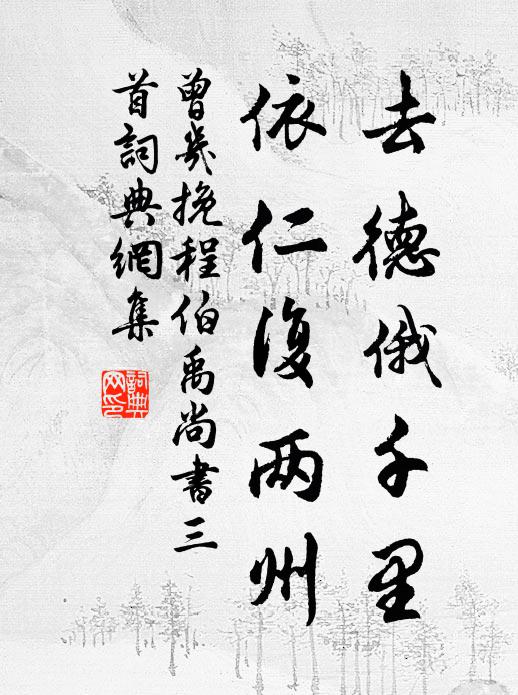 去德俄千里
依仁复两州
曾幾挽程伯禹尚書三
首詞典網集
詞典
网印